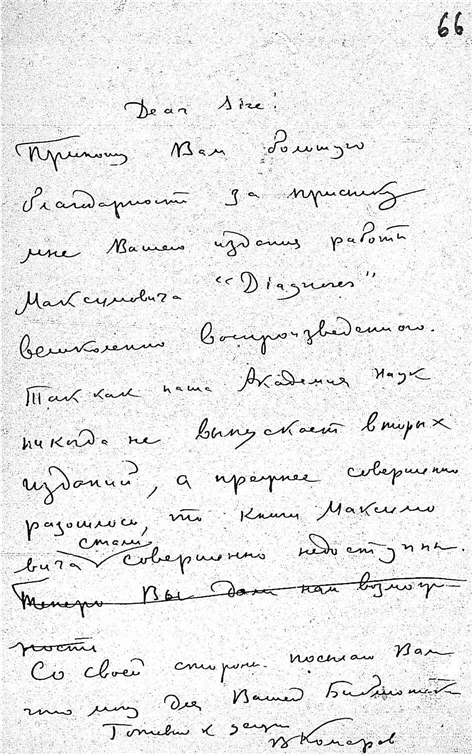 66
Dear Sire!
Приношу Вам большую
благодарность за присылку
мне Вашего издания работы
Максимовича "Diagnoses"
великолепно воспроизведенного.
Так как наша Академия Наук
никогда не выпускает вторых
изданий, а прежнее совершенно
разошлось, то книги Максимо
стали
вича совершенно недоступны.
Теперь Вы дали нам возмож-
ность
Со своей стороны посылаю Вам
что могу для Вашей Библиотеки
Готовый к услугам
В Комаров